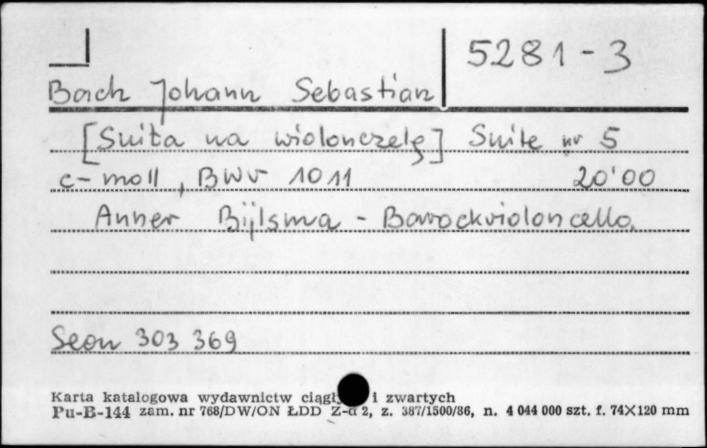 5281-3
Bach Johann Sebastian
[Suita na wiolonczelę] Suite nr 5
c-moll, BWV 1011 20'00
Anner Bijlsma - Barockvioloncello.
Seon 303 369
Karta katalogowa wydawnictw i zwartych
Pu-B-144 zam. nr 768/DW/ON ŁDD 2, z. 387/1500/86, n. 4 044 000 szt. f. 74X120 mm